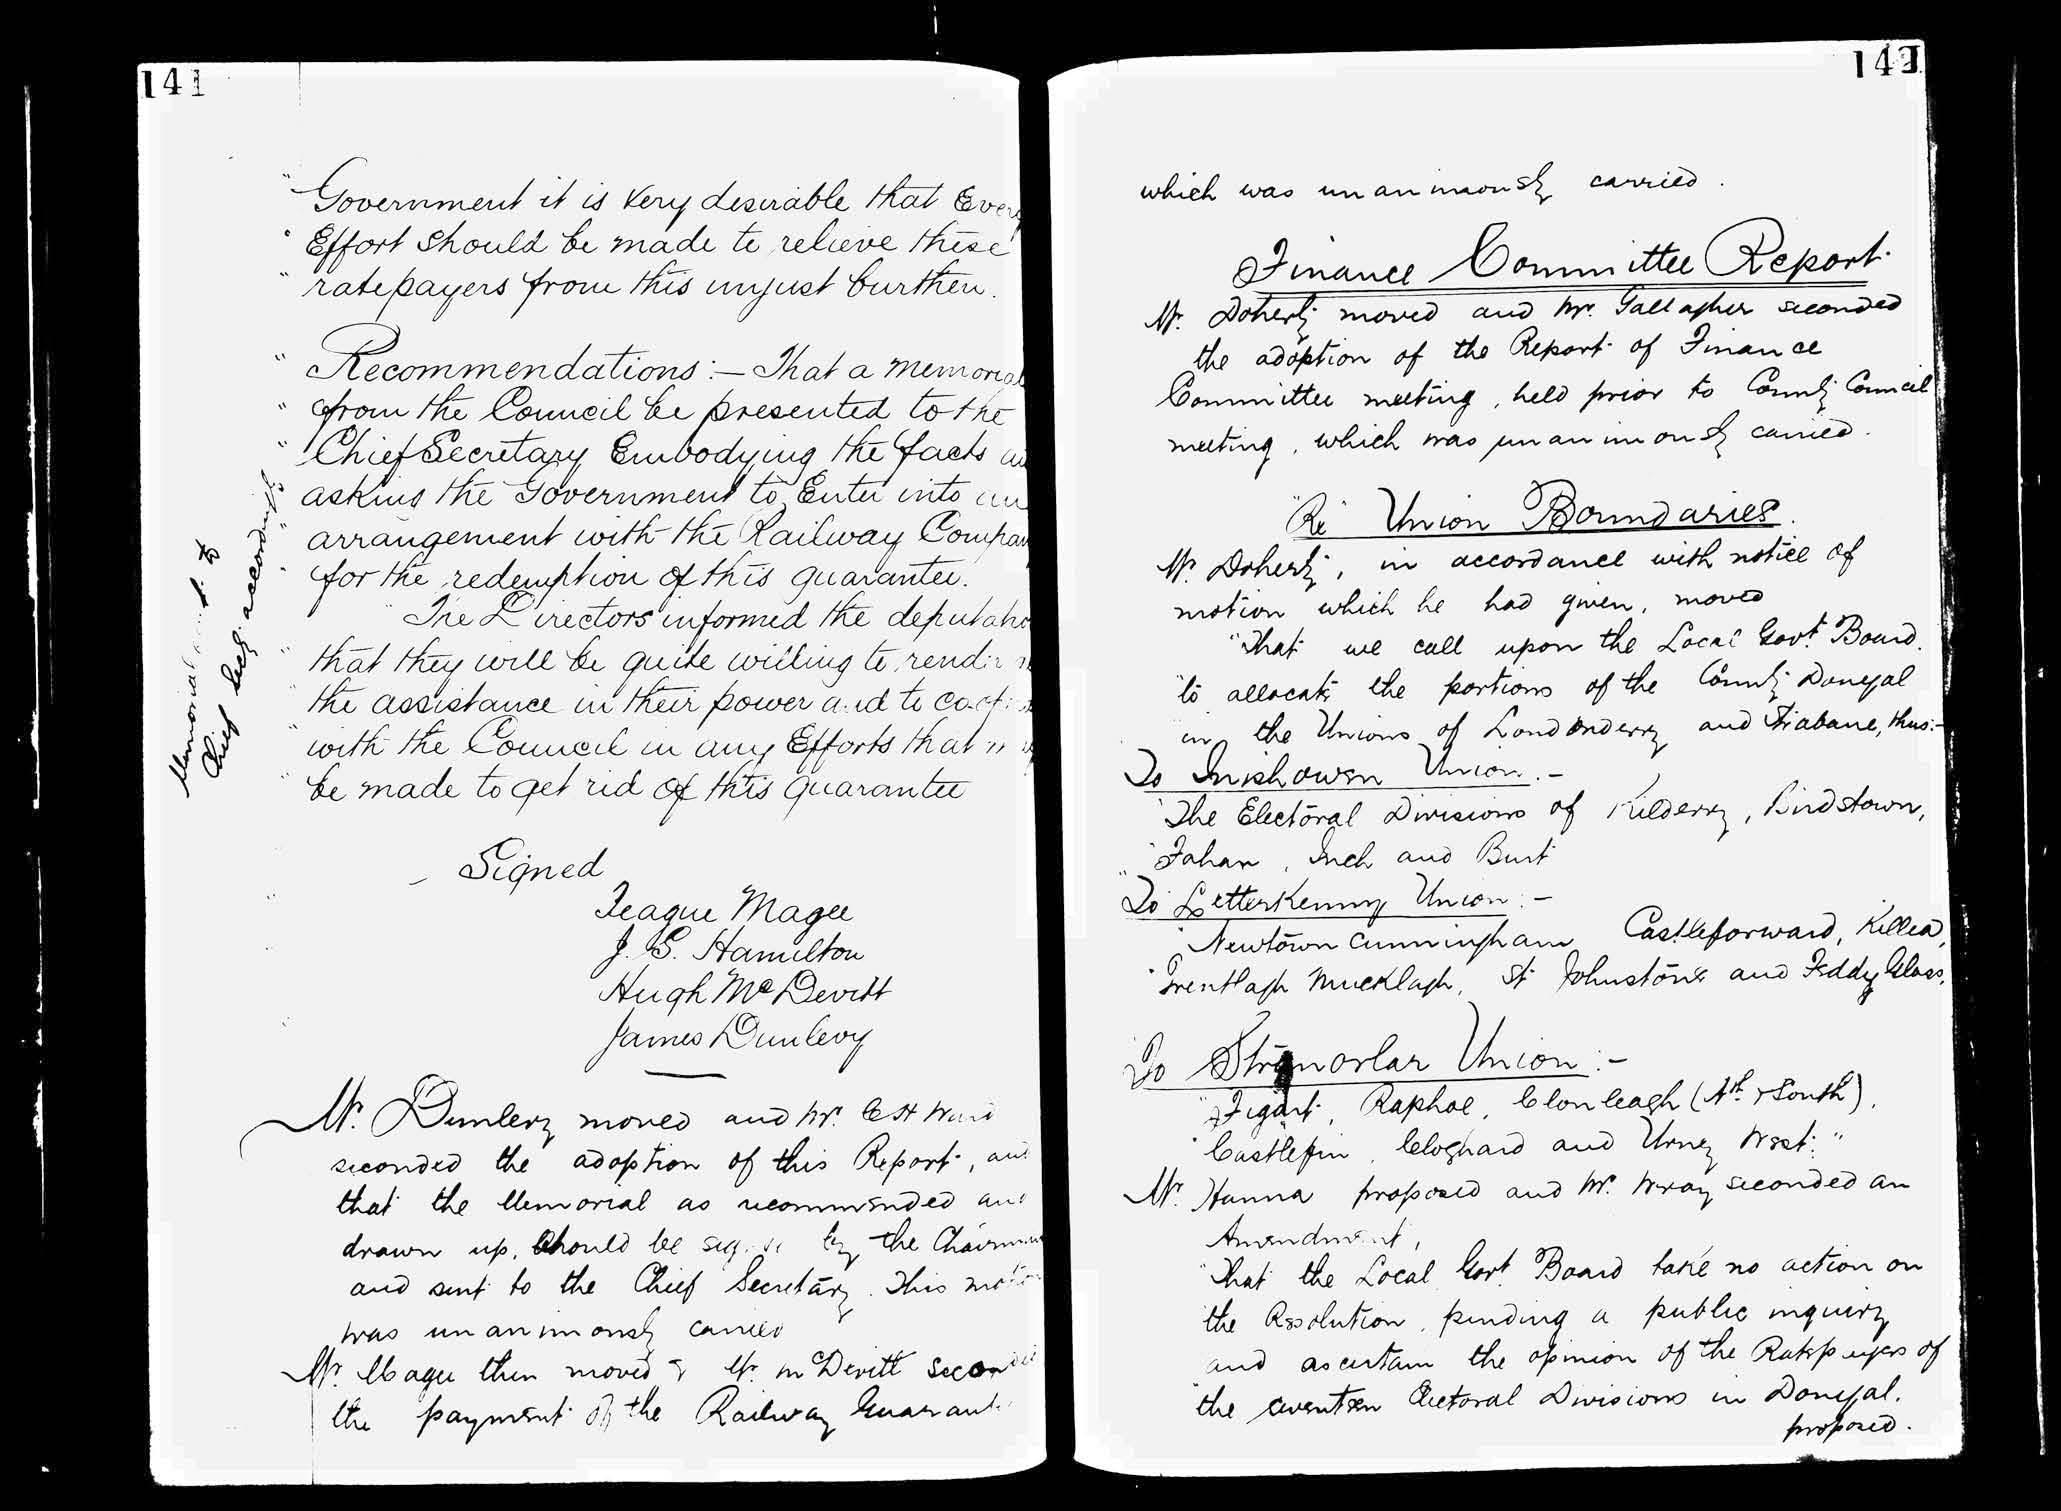 141
Government it is very desirable that Every
Effort should be made to relieve these
ratepayers from this unjust burthen.
Recommendations :— That a memorial
from the Council be presented to the
Chief Secretary Embodying the facts
asking the Government to Enter into
arrangement with the Railway
for the redemption of this guarantee.
The Directors informed the
that they will be quite willing to render
the assistance in their power and to
with the Council in any Efforts that
be made to get rid of this guarantee
Signed
Teague Magee
J. G. Hamilton
Hugh McDevitt
James Dunlevy
Memorial sent to
Chief Secy accordingly
Mr. Dunlevy moved and Mr. Ward
seconded the adoption of this Report, and
that the Memorial as recommended and
drawn up, should be signed by the Chairman
and sent to the Chief Secretary. This motion
was unanimously carried
Mr. Magee then moved & Mr. McDevitt seconded
the payment of the Railway
142
which was unanimously carried.
Finance Committee Report
Mr. Doherty moved and Mr. Gallagher seconded
the adoption of the Report of Finance
Committee meeting, held prior to County Council
meeting, which was unanimously carried.
"Re" Union Boundaries.
Mr. Doherty, in accordance with notice of
motion which he had given, moved
"That we call upon the Local Govt. Board.
"to allocate the portions of the County Donegal
in the Unions of Londonderry and Strabane, thus:—
To Inishowen Union :—
"The Electoral Divisions of Kilderry, Birdstown,
"Fahan, Inch and Burt
To Letterkenny Union :—
"Newtowncunningham Castleforward, Killea,
"Treantagh Mucklagh, St Johnstone and Feddyglass,
To Stranorlar Union :—
"Figart, Raphoe, Clonleagh (Nth. & South),
"Castlefin, Cloghard and Urney West."
Mr. Hanna proposed and Mr. Wray seconded an
Amendment,
"That the Local Govt. Board take no action on
"the Resolution, pending a public inquiry
and ascertain the opinion of the Ratepayers of
"the seventeen Electoral Divisions in Donegal.
proposed.